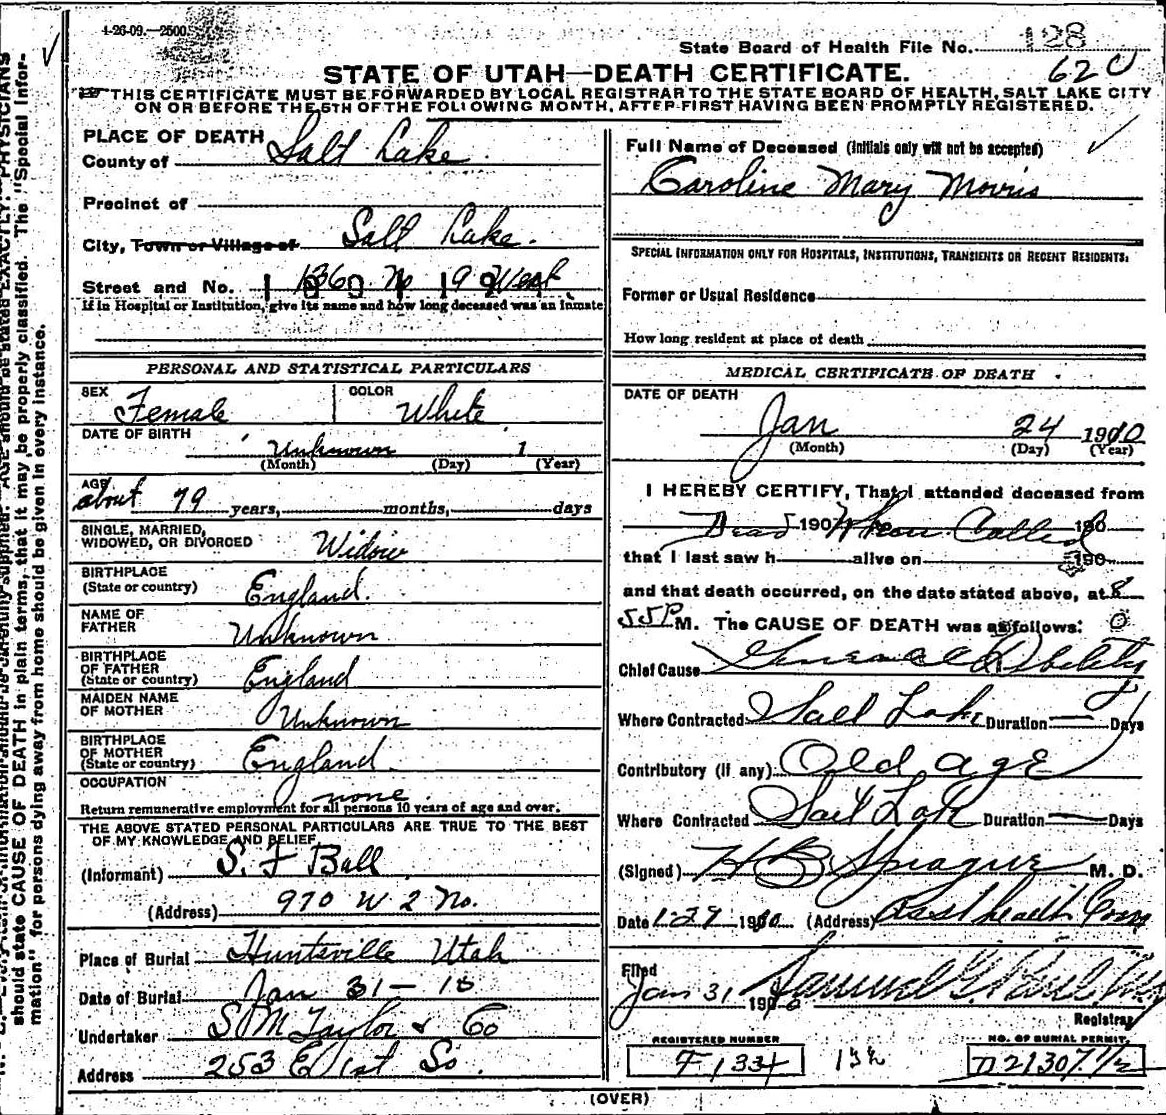 4-26-09.—2500.
State Board of Health File No. 128
62 C
STATE OF UTAH—DEATH CERTIFICATE.
THIS CERTIFICATE MUST BE FORWARDED BY LOCAL REGISTRAR TO THE STATE BOARD OF HEALTH, SALT LAKE CITY
ON OR BEFORE THE 5TH OF THE FOLLOWING MONTH, AFTER FIRST HAVING BEEN PROMPTLY REGISTERED.
PLACE OF DEATH
County of Salt Lake
Precinct of
City, Town or Village of Salt Lake.
Street and No. 136 No 9 West
If in Hospital or Institution, give its name and how long deceased was an inmate
PERSONAL AND STATISTICAL PARTICULARS
SEX Female COLOR White
DATE OF BIRTH Unknown 1
(Month) (Day) (Year)
AGE about 79 years, months, days
SINGLE, MARRIED,
WIDOWED, OR DIVORCED Widow
BIRTHPLACE
(State or country) England.
NAME OF
FATHER Unknown
BIRTHPLACE
OF FATHER
(State or country) England
MAIDEN NAME
OF MOTHER Unknown
BIRTHPLACE
OF MOTHER
(State or country) England
OCCUPATION none
Return remunerative employment for all persons 10 years of age and over.
THE ABOVE STATED PERSONAL PARTICULARS ARE TRUE TO THE BEST
OF MY KNOWLEDGE AND BELIEF
(Informant) S. F Ball
(Address) 970 W 2 No.
Place of Burial Huntsville Utah
Date of Burial Jan 31 - 10
Undertaker S M Taylor & Co
Address 253 E 1st So.
Full Name of Deceased (Initials only will not be accepted)
Caroline Mary Morris
SPECIAL INFORMATION ONLY FOR HOSPITALS, INSTITUTIONS, TRANSIENTS OR RECENT RESIDENTS:
Former or Usual Residence
How long resident at place of death
MEDICAL CERTIFICATE OF DEATH
DATE OF DEATH
Jan 24 1910
(Month) (Day) (Year)
I HEREBY CERTIFY, That I attended deceased from
Dead 190 When Called 190
that I last saw h alive on 190
and that death occurred, on the date stated above, at 8
55 P M. The CAUSE OF DEATH was as follows:
Chief Cause General Debility
Where Contracted Salt Lake Duration Days
Contributory (if any) Old age
Where Contracted Salt Lak Duration Days
(Signed) H B Sprague M. D.
Date 1-29 1910 (Address) Health Com
Filed
Jan 31 1910 Samuel G.
Registrar
REGISTERED NUMBER
F 134
132
NO. OF BURIAL PERMIT.
D 21307 1/2
(OVER)
should state CAUSE OF DEATH in plain terms, that it may be properly classified. The "Special Infor-
mation" for persons dying away from home should be given in every instance.